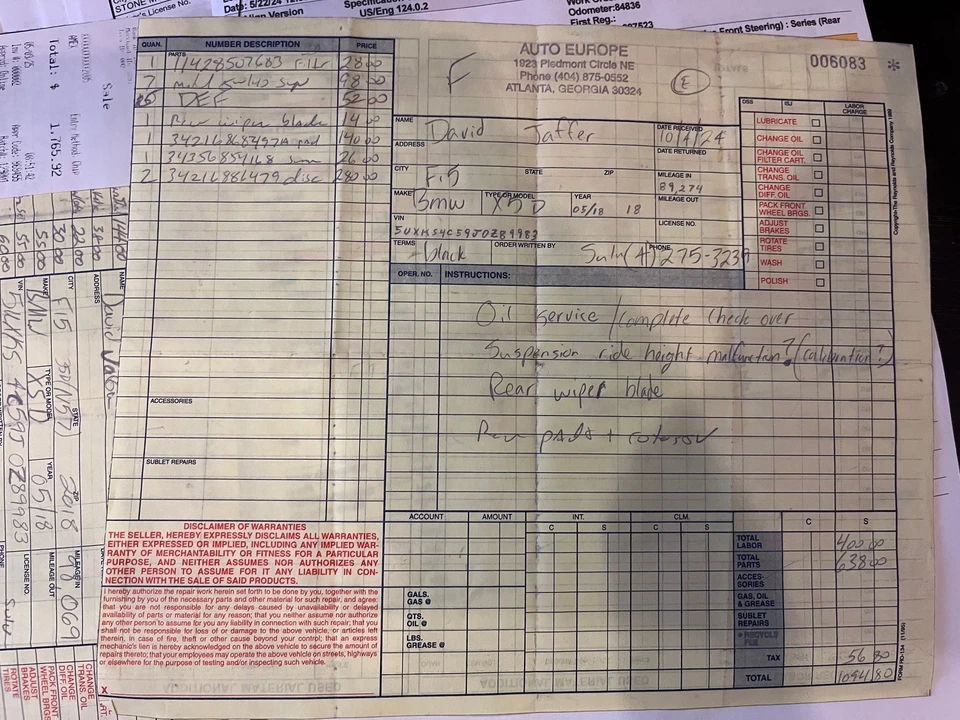 STONE M
er's License No.
Date: 5/22/24 12
Version
Specification
US/Eng 124.0.2
Work O
Odometer:84836
First Reg.:
Front Steering) : Series (Rear
Sale
Total: $ 1,765.92
QUAN.
NUMBER DESCRIPTION
PRICE
PARTS
1 11428507683 Filtr 28 00
7 98 00
DEF 52 00
Rear wiper blade 14 00
1 34216868497A pad 140 00
1 34356854168 26 00
2 34216886479 disc 280 00
ACCESSORIES
SUBLET REPAIRS
AUTO EUROPE
1923 Piedmont Circle NE
Phone (404) 875-0552
ATLANTA, GEORGIA 30324
F
E
006083 *
NAME David Jaffer
DATE RECEIVED 10/4/24
ADDRESS
DATE RETURNED
CITY F15
STATE
ZIP
MILEAGE IN 89,274
MAKE Bmw
TYPE OR MODEL X5D
YEAR 05/18 18
MILEAGE OUT
VIN 5UXKS4C59J0Z89983
LICENSE NO.
TERMS black
ORDER WRITTEN BY
PHONE (4) 275-3239
OPER. NO.
INSTRUCTIONS:
Oil service / complete check over
Suspension ride height malfunction? (calibration?)
Rear wiper blade
Rear pads + rotors
LABOR CHARGE
LUBRICATE
CHANGE OIL
CHANGE OIL FILTER CART.
CHANGE TRANS. OIL
CHANGE DIFF. OIL
PACK FRONT WHEEL BRGS.
ADJUST BRAKES
ROTATE TIRES
WASH
POLISH
DISCLAIMER OF WARRANTIES
THE SELLER, HEREBY EXPRESSLY DISCLAIMS ALL WARRANTIES,
EITHER EXPRESSED OR IMPLIED, INCLUDING ANY IMPLIED WAR-
RANTY OF MERCHANTABILITY OR FITNESS FOR A PARTICULAR
PURPOSE, AND NEITHER ASSUMES NOR AUTHORIZES ANY
OTHER PERSON TO ASSUME FOR IT ANY LIABILITY IN CON-
NECTION WITH THE SALE OF SAID PRODUCTS.
I hereby authorize the repair work herein set forth to be done by you, together with the
furnishing by you of the necessary parts and other material for such repair, and agree:
that you are not responsible for any delays caused by unavailability or delayed
availability of parts or material for any reason; that you neither assume nor authorize
any other person to assume for you any liability in connection with such repair; that you
shall not be responsible for loss of or damage to the above vehicle, or articles left
therein, in case of fire, theft or other cause beyond your control; that an express
mechanic's lien is hereby acknowledged on the above vehicle to secure the amount of
repairs thereto; that your employees may operate the above vehicle on streets, highways
or elsewhere for the purpose of testing and/or inspecting such vehicle.
X
ACCOUNT
AMOUNT
INT.
CLM.
C S
C S
C S
GALS. GAS @
QTS. OIL @
LBS. GREASE @
TOTAL LABOR 400 00
TOTAL PARTS 638 00
ACCES-SORIES
GAS, OIL & GREASE
SUBLET REPAIRS
TAX 56 80
TOTAL 1094 80
NAME David
ADDRESS
CITY F15
STATE
ZIP 2018
MILEAGE IN
MAKE BMW
TYPE OR MODEL X5D
YEAR 05/18
MILEAGE OUT
VIN 5UXKS4C59J0Z89983
LICENSE NO.
PHONE
CHANGE TRANS. OIL
CHANGE DIFF. OIL
PACK FRONT WHEEL BRGS.
ADJUST BRAKES
ROTATE TIRES